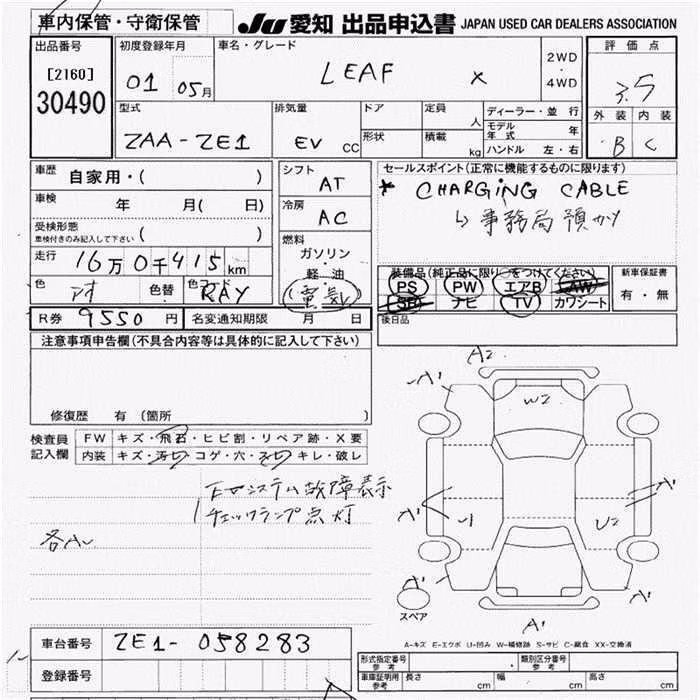 車内保管・守衛保管 JU 愛知 出品申込書 JAPAN USED CAR DEALERS ASSOCIATION
出品番号 初度登録年月 車名・グレード 2WD・4WD 評価点
[2160] 01 05月 LEAF X 3.5
30490 型式 排気量 ドア 定員 人 ディーラー・並行 外装 内装
ZAA-ZE1 EV CC 形状 積載 kg モデル年式 年 B C
ハンドル 左・右
車歴 自家用・( ) シフト AT セールスポイント(正常に機能するものに限ります)
車検 年 月( 日) 冷房 AC * CHARGING CABLE
受検形態 ( ) ↳事務局預かり
車検付きのみ記入して下さい
走行 16万0千415km 燃料 ガソリン・軽油 (電気)
装備品(純正品に限り○をつけてください) 新車保証書
色 色替 色コード RAY PS PW エアB AW 有・無
SR ナビ TV カワシート
R券 9550円 名変通知期限 月 日 後日品
注意事項申告欄(不具合内容等は具体的に記入して下さい)
修復歴 有(箇所 )
検査員記入欄 FW キズ・飛石・ヒビ割・リペア跡・X要
内装 キズ・汚れ・コゲ・穴・スレ・キレ・破レ
システム故障表示
チェックランプ点灯
A2
A' W2
A' A'
U1 U2
A' A'
スペア A1
A-キズ E-エクボ U-凹み W-補修跡 S-サビ C-腐食 XX-交換済
車台番号 ZE1-058283
登録番号
形式指定番号参考 類別区分番号参考
車庫証明用参考 長さ cm 幅 cm 高さ cm